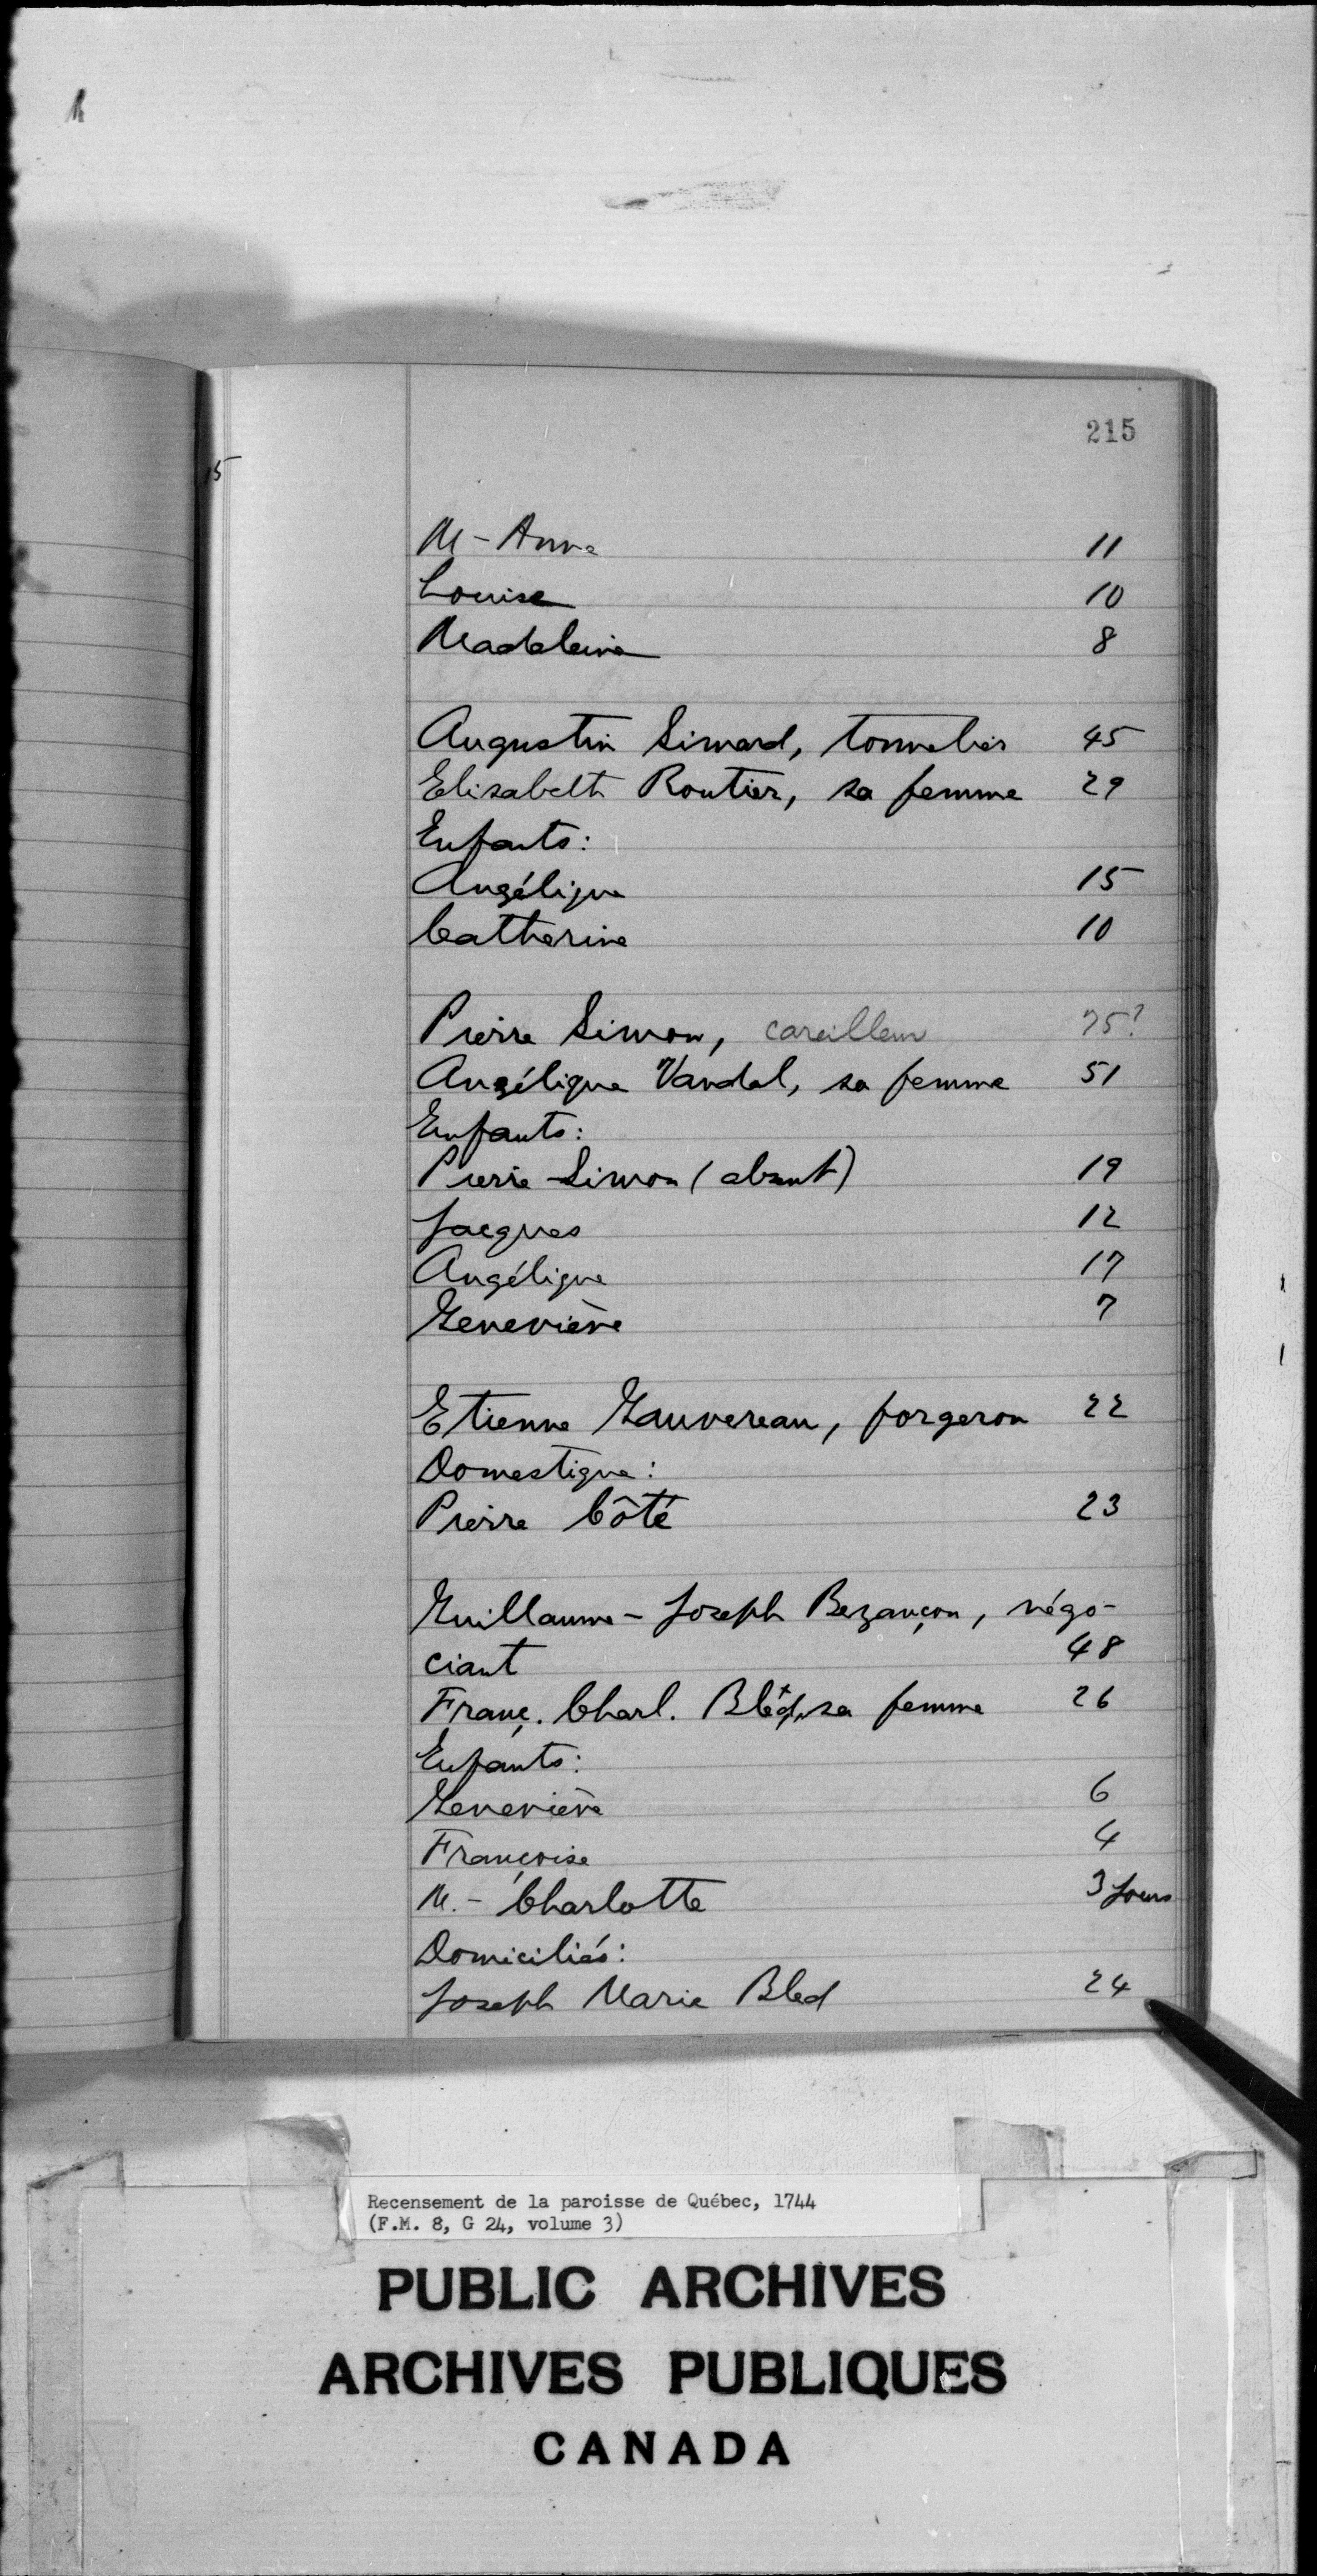 215
15
M-Anne 11
Louise 10
Madeleine 8
Augustin Simard, tonnelier 45
Elisabeth Routier, sa femme 29
Enfants:
Angélique 15
Catherine 10
Pierre Simon, careilleur 75?
Angélique Vandal, sa femme 51
Enfants:
Pierre-Simon (absent) 19
Jacques 12
Angélique 17
Geneviève 7
Etienne Gauvereau, forgeron 22
Domestique:
Pierre Côté 23
Guillaume-Joseph Bezançon, négo-
ciant 48
Franç. Charl. Bled, sa femme 26
Enfants:
Geneviève 6
Françoise 4
M.-Charlotte 3 jours
Domiciliés:
Joseph Marie Bled 24
Recensement de la paroisse de Québec, 1744
(F.M. 8, G 24, volume 3)
PUBLIC ARCHIVES
ARCHIVES PUBLIQUES
CANADA